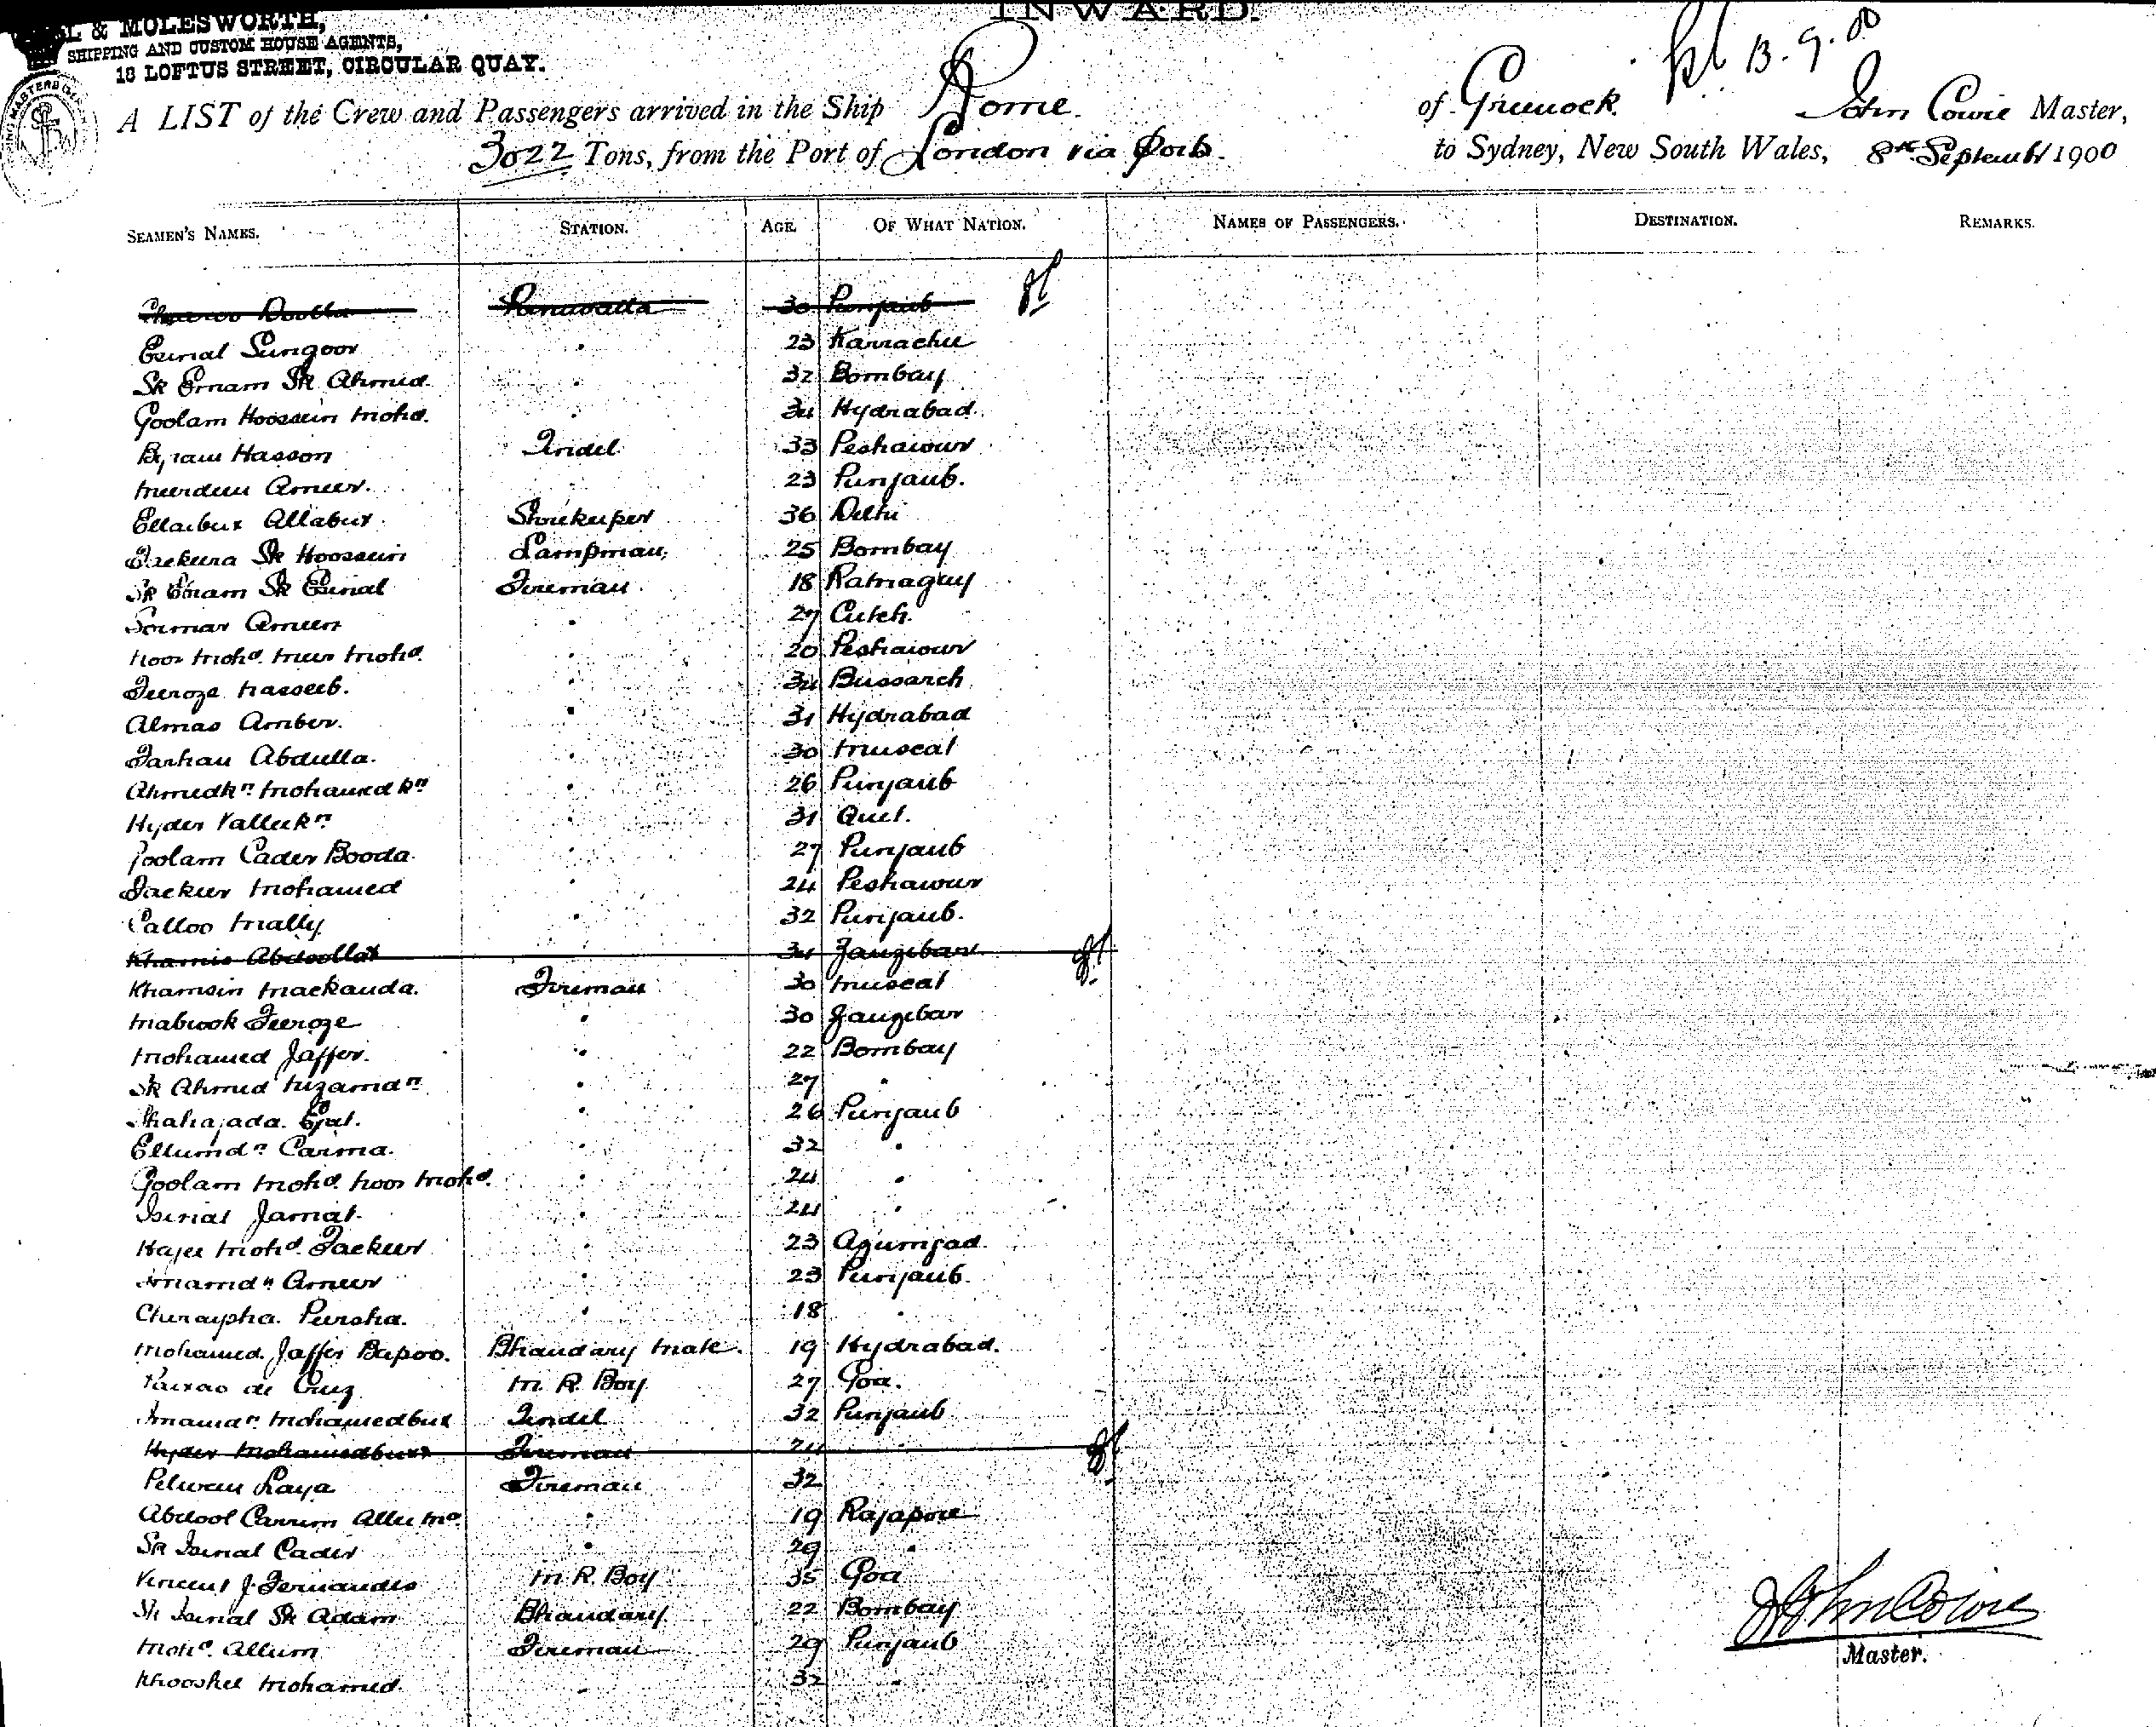 INWARD.
& MOLESWORTH,
SHIPPING AND CUSTOM HOUSE AGENTS,
18 LOFTUS STREET, CIRCULAR QUAY.
13.9.00
A LIST of the Crew and Passengers arrived in the Ship Rome of Greenock John Cowie Master,
3022 Tons, from the Port of London via Ports to Sydney, New South Wales, 8th September 1900
SEAMEN'S NAMES. STATION. AGE. OF WHAT NATION. NAMES OF PASSENGERS. DESTINATION. REMARKS.
30 Punjaub
Esmal Sungoor " 23 Karrachee
Sk Emam Sk Ahmed " 32 Bombay
Goolam Hoossein Mohd. " 34 Hydrabad
Byram Hasson Tindel 33 Peshawur
Ameer. " 23 Punjaub.
Ellaibux Allabux Storekeeper 36 Delhi
Sk Hoossein Lampman 25 Bombay
Sk Emam Sk Esmal Fireman 18 Ratnagiry
Soomar Ameen " 27 Cutch.
Noor Mohd. Meer Mohd. " 20 Peshawur
Feeroze Nasseeb. " 34 Bussarah
Almas Amber. " 31 Hydrabad
Farhan Abdulla. " 30 Muscat
Ahmedkn Mohamedkn " 26 Punjaub
Hyder Valleekn " 31 Quet.
Goolam Cader Booda " 27 Punjaub
Fackeer Mohamed " 24 Peshawur
Calloo Mally " 32 Punjaub.
Khamis Abdoolla 34 Zanzibar
Khamsin Mackauda. Fireman 30 Muscat
Mabrook Feeroze " 30 Zanzibar
Mohamed Jaffer. " 22 Bombay
Sk Ahmed Nizamdn " 27 "
Shahajada " 26 Punjaub
Ellumdn Carima. " 32 "
Goolam Mohd. Noor Mohd. " 24 "
Ismal Jamal. " 24 "
Hajee Mohd. Fackeer " 23 Azumgad
Emamdn Ameer " 23 Punjaub.
Peersha. " 18 "
Mohamed Jaffer Bapoo. Bhandary Mate. 19 Hydrabad.
Paixao de Cruz M. R. Boy 27 Goa.
Emamdn Mohamedbux Tindel 32 Punjaub
Hyder Mohamedbux Fireman 24 "
Laya Fireman 32
Abdool Carrim Allee Md. " 19 Rajapore
Sk Ismal Cader " 29 "
Vincent J. Fernandes M. R. Boy 35 Goa
Sk Ismal Sk Adam Bhandary 22 Bombay
Mohd. Allum Fireman 29 Punjaub
Khooshel Mohamed " 32 "
John Cowie
Master.